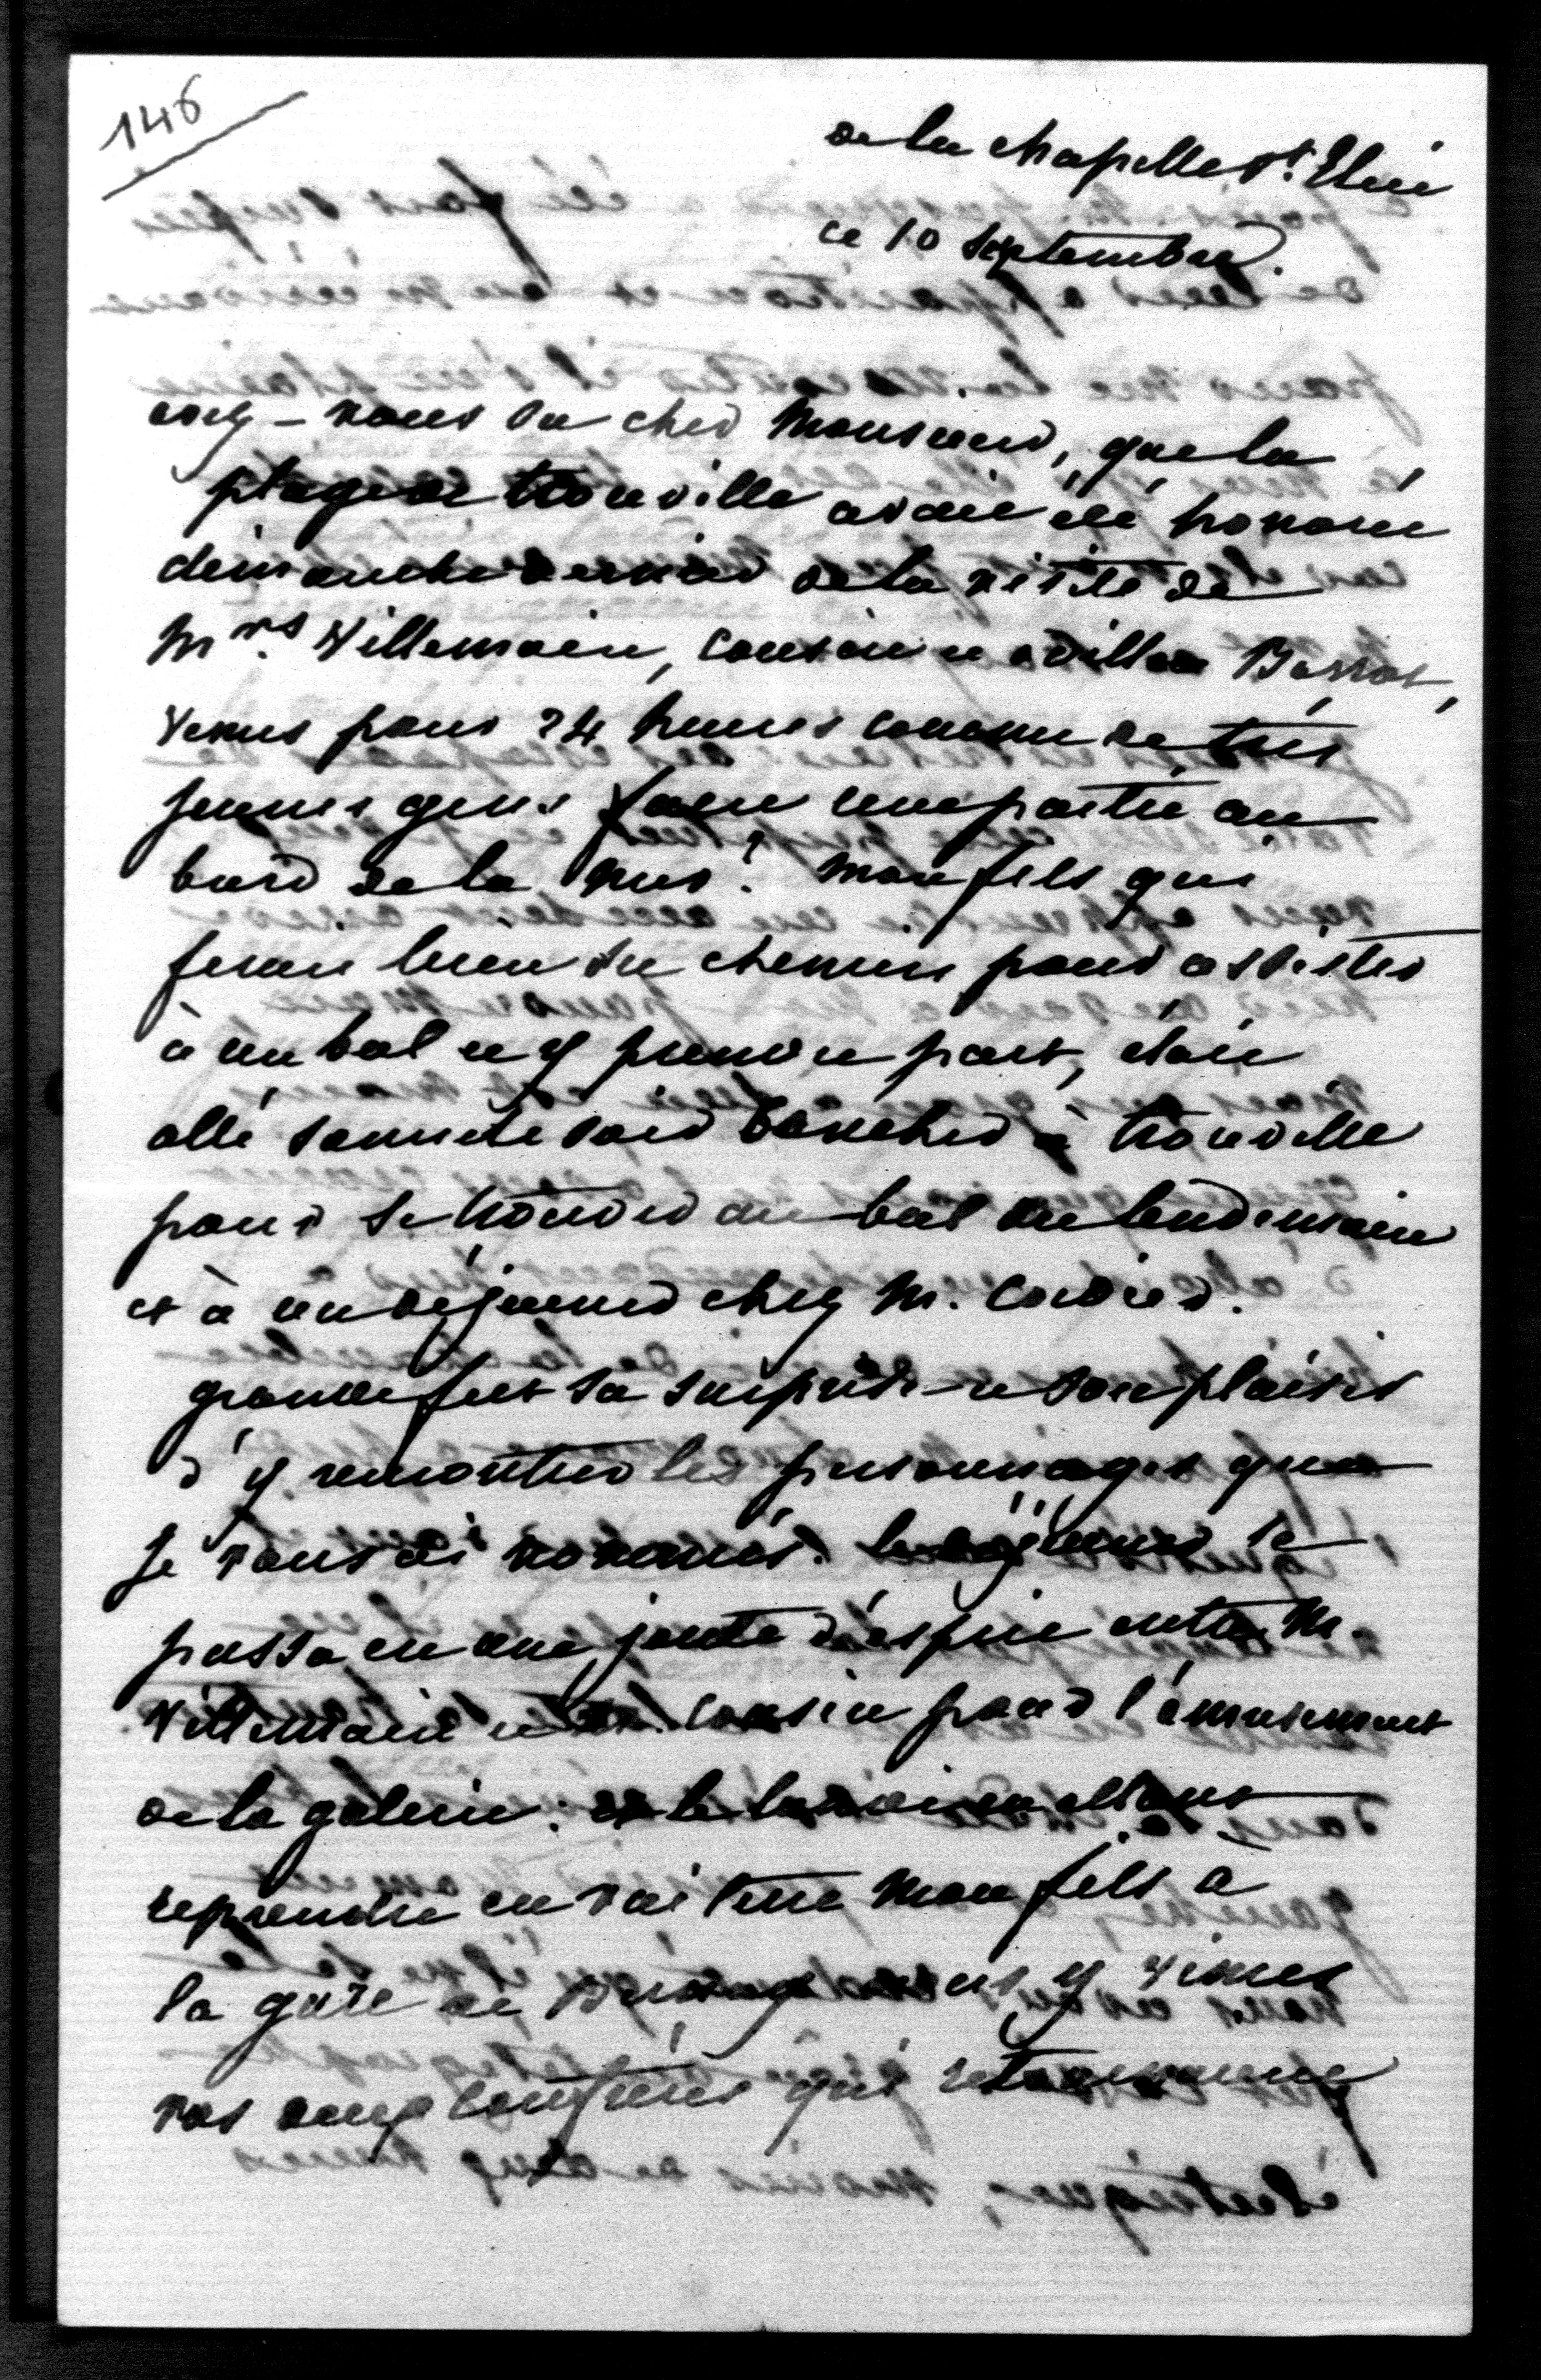 146
de la chapelle St. Eloi
ce 10 septembre.
avez-vous su cher Monsieur, que la
plage de trouville avait été honorée
dimanche dernier de la visite de
Mrs. Villemain, Cousin et odillon Barrot,
venus pour 24 heures comme de très
jeunes gens faire une partie au
bord de la mer? mon fils qui
ferait bien du chemin pour assister
à un bal et y prendre part, était
allé samedi soir coucher à trouville
pour se trouver au bal du lendemain
et à un déjeuner chez M. Cordier.
grande fut sa surprise et son plaisir
d'y rencontrer les personnages que
je vous ai nommés. le déjeuner se
passa en une joute d'esprit entre M.
Villemain et M. Cousin pour l'amusement
de la galerie. et le lundi allant
reprendre en voiture mon fils à
la gare de nous y vimes
vos deux confrères qui retournaient